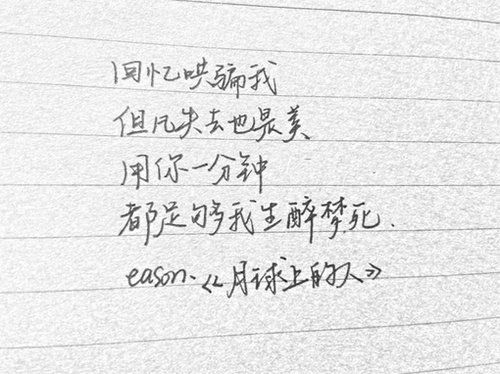 回忆哄骗我
但凡失去也是美
用你一分钟
都足够我生醉梦死.
eason.《月球上的人》